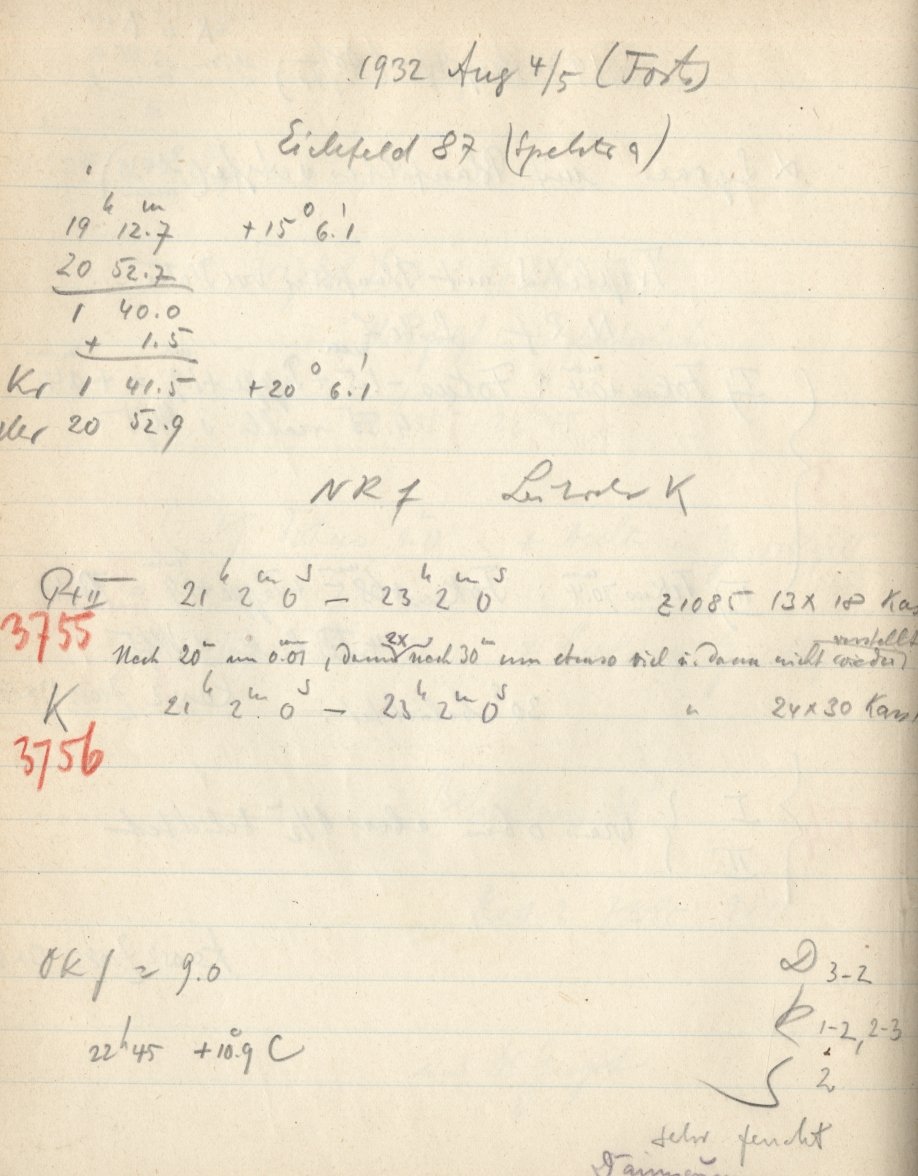 1932 Aug 4/5 (Forts)
Eichfeld 87 (Spektra)
19h 12.m7 +15° 6.'1
20 52.7
1 40.0
+ 1.5
Kr 1 41.5 +20° 6.'1
20 52.9
NR f K
P+II 21h 2m 0s – 23h 2m 0s Z1085 13 x 18 Kas
3755
Nach 20m um 0.01, dann 2x nach 30m um ebenso viel u. dann nicht wieder verstellt
K 21h 2m 0s – 23h 2m 0s " 24 x 30 Kass
3756
OK f = 9.0
D 3-2
R 1-2, 2-3
22h 45 +10.°9 C
S 2
sehr feucht